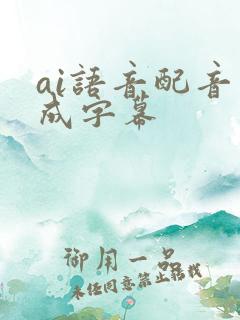 ai語音配音
成字幕
御用一品
未经同意禁止转载